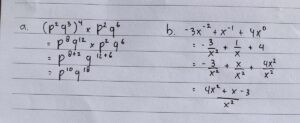 a. (p²q³)⁴ × p²q⁶
= p⁸q¹² × p²q⁶
= p⁸⁺² q¹²⁺⁶
= p¹⁰ q¹⁸
b. -3x⁻² + x⁻¹ + 4x⁰
= -3/x² + 1/x + 4
= -3/x² + x/x² + 4x²/x²
= (4x² + x - 3)/x²